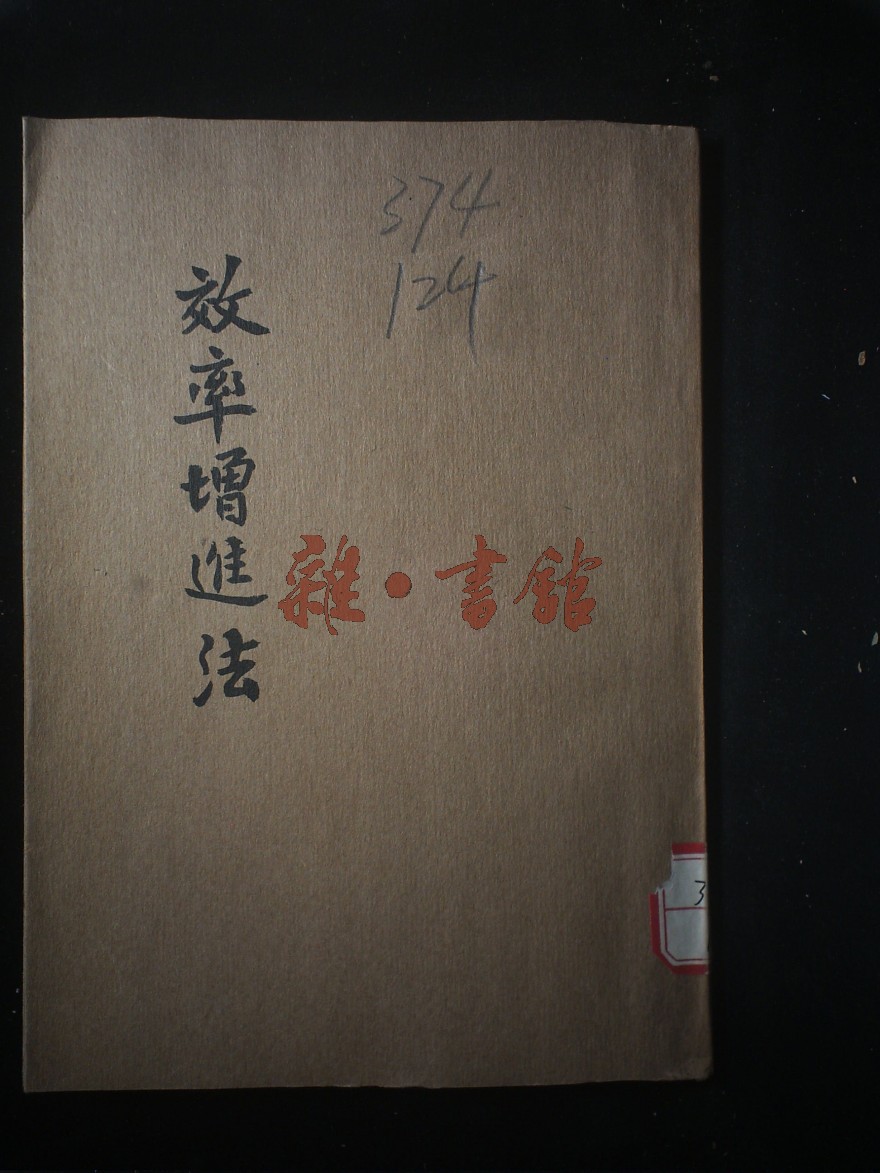 374
124
效率增進法
雜·書館
3